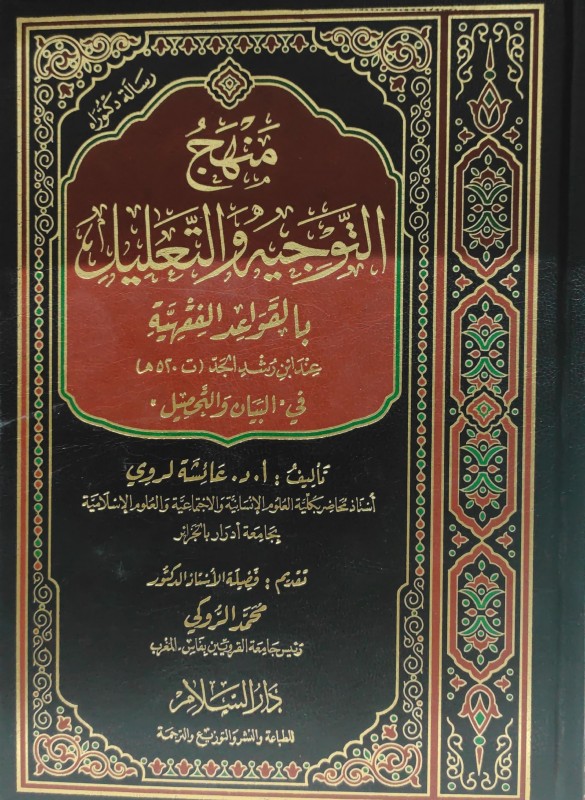 رسالة دكتوراه
مَنْهَجُ
التَّوْجِيهِ وَالتَّعْلِيلِ
بِالقَوَاعِدِ الفِقْهِيَّةِ
عِنْدَ ابْنِ رُشْدٍ الجَدِّ (ت ٥٢٠هـ)
فِي "البَيَانِ وَالتَّحْصِيلِ"
تَأليفُ : أ. د. عَائِشَة لروي
أستاذ محاضر بكلية العلوم الإنسانية والاجتماعية والعلوم الإسلامية
بجامعة أدرار بالجزائر
تقديم : فضيلة الأستاذ الدكتور
محمد الروكي
رئيس جامعة القرويين بفاس - المغرب
دار السلام
للطباعة والنشر والتوزيع والترجمة